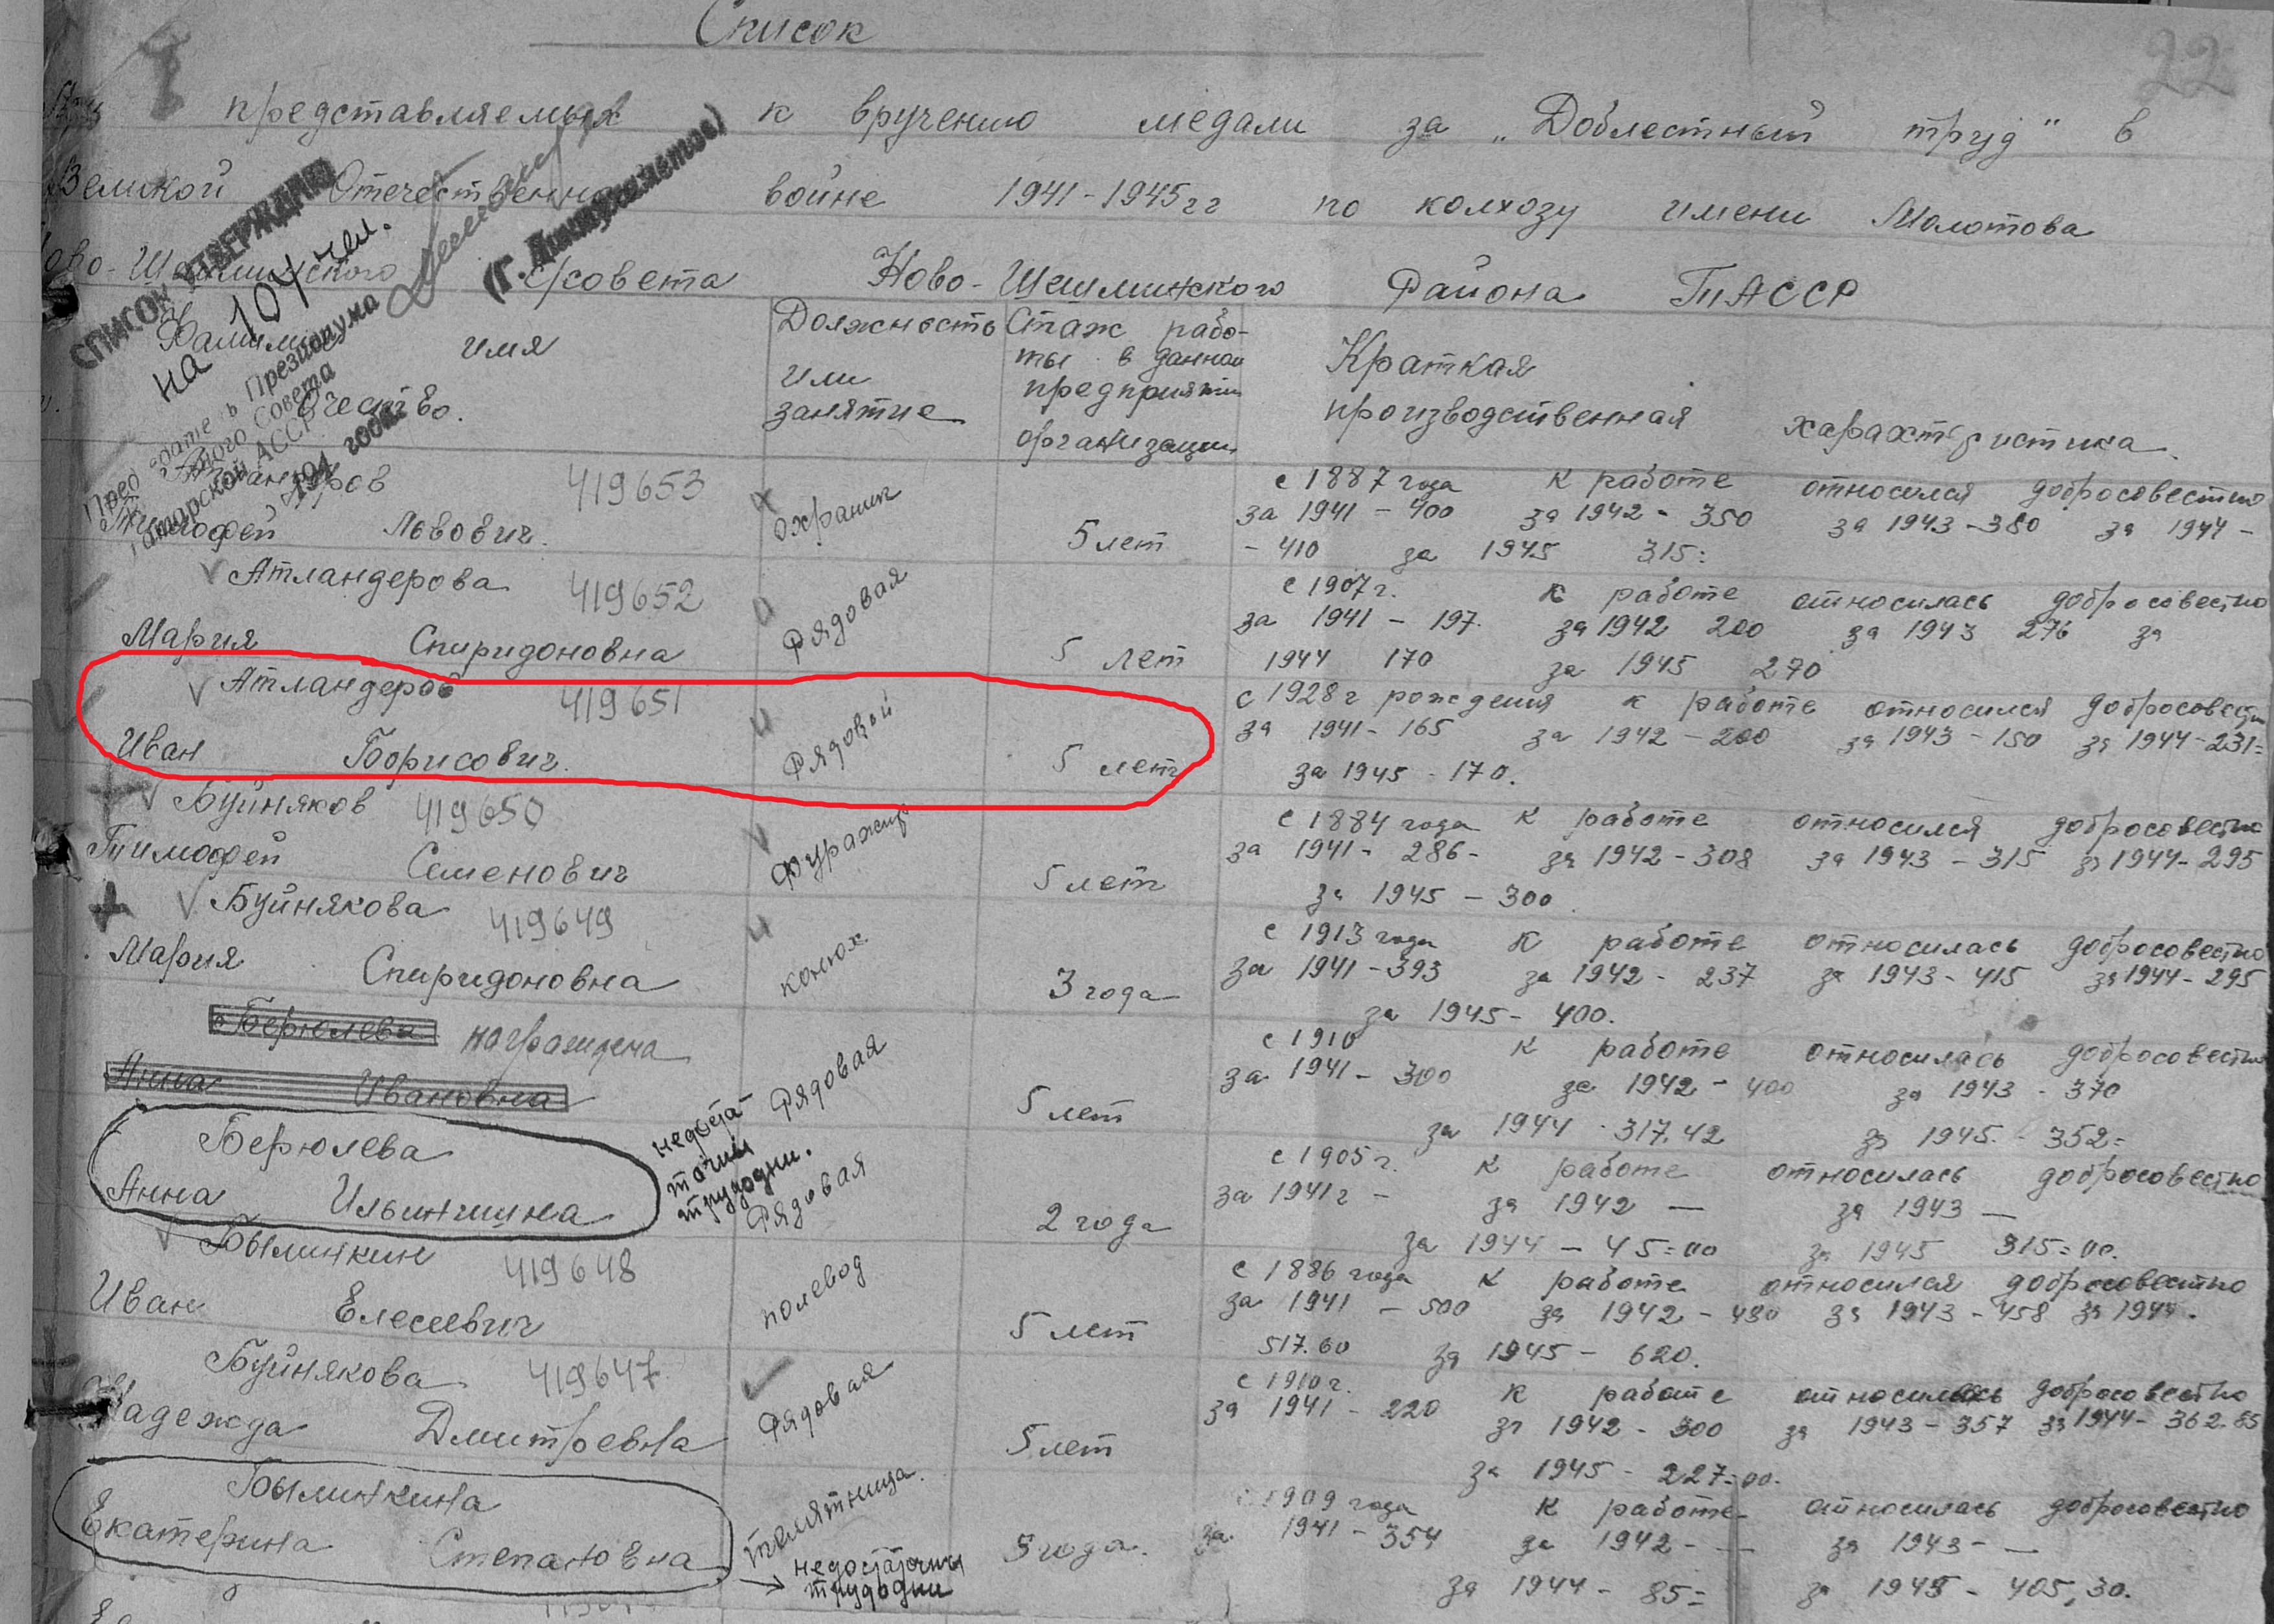 Список
22
представляемых к вручению медали за „Доблестный труд" в
Великой Отечественной войне 1941-1945гг по колхозу имени Молотова
Ново-Шешминского с/совета Ново-Шешминского Района ТАССР
СПИСОК УТВЕРЖДАЮ
на 104 чел.
Президиума
Совета
Татарской АССР
194 года
(Г. Динмухаметов)
Фамилия имя
Отчество.
Должность
или
занятие
Стаж рабо-
ты в данной
предприятии
организации
Краткая
производственная характеристика.
419653 охраник 5 лет с 1887 года к работе относился добросовестно
Тимофей Львович. за 1941 - 400 за 1942 - 350 за 1943 - 380 за 1944 -
- 410 за 1945 315:
Атландерова 419652 Рядовая с 1907г. к работе относилась добросовестно
Мария Спиридоновна 5 лет за 1941 - 197. за 1942 200 за 1943 276 за
1944 170 за 1945 270
Атландеров 419651 Рядовой с 1928г рождения к работе относился добросовестн
Иван Борисович. 5 лет за 1941 - 165 за 1942 - 200 за 1943 - 150 за 1944 - 231=
за 1945 - 170.
Буйняков 419650 фуражир с 1884 года к работе относился добросовестно
Тимофей Семенович 5 лет за 1941 - 286 - за 1942 - 308 за 1943 - 315 за 1944 - 295
за 1945 - 300
Буйнякова 419649 конюх с 1913 года к работе относилась добросовестно
Мария Спиридоновна 3 года за 1941 - 393 за 1942 - 237 за 1943 - 415 за 1944 - 295
за 1945 - 400.
Берюлева награждена Рядовая с 1910 к работе относилась добросовестно
Анна Ивановна 5 лет за 1941 - 300 за 1942 - 400 за 1943 - 370
за 1944 - 317.42 за 1945. - 352=
Берюлева Рядовая с 1905г. к работе относилась добросовестно
Анна Ильинична 2 года за 1941г - за 1942 — за 1943 —
недоста-
точны
трудодни.
за 1944 - 45=00 за 1945 315=00.
Былинкин 419648 полевод с 1886 года к работе относился добросовестно
Иван Елесеевич 5 лет за 1941 - 500 за 1942 - 480 за 1943 - 458 за 1944.
517.60 за 1945 - 620.
Буйнякова 419647 Рядовая с 1910г. к работе относилась добросовестно
Надежда Дмитревна 5 лет за 1941 - 220 за 1942 - 300 за 1943 - 357 за 1944 - 362.85
за 1945 - 227=00.
Былинкина телятница. с 1909 года к работе относилась добросовестно
Екатерина Степановна 3 года. за 1941 - 354 за 1942 - — за 1943 - —
недостаточны
трудодни
за 1944 - 85= за 1945 - 405,30.